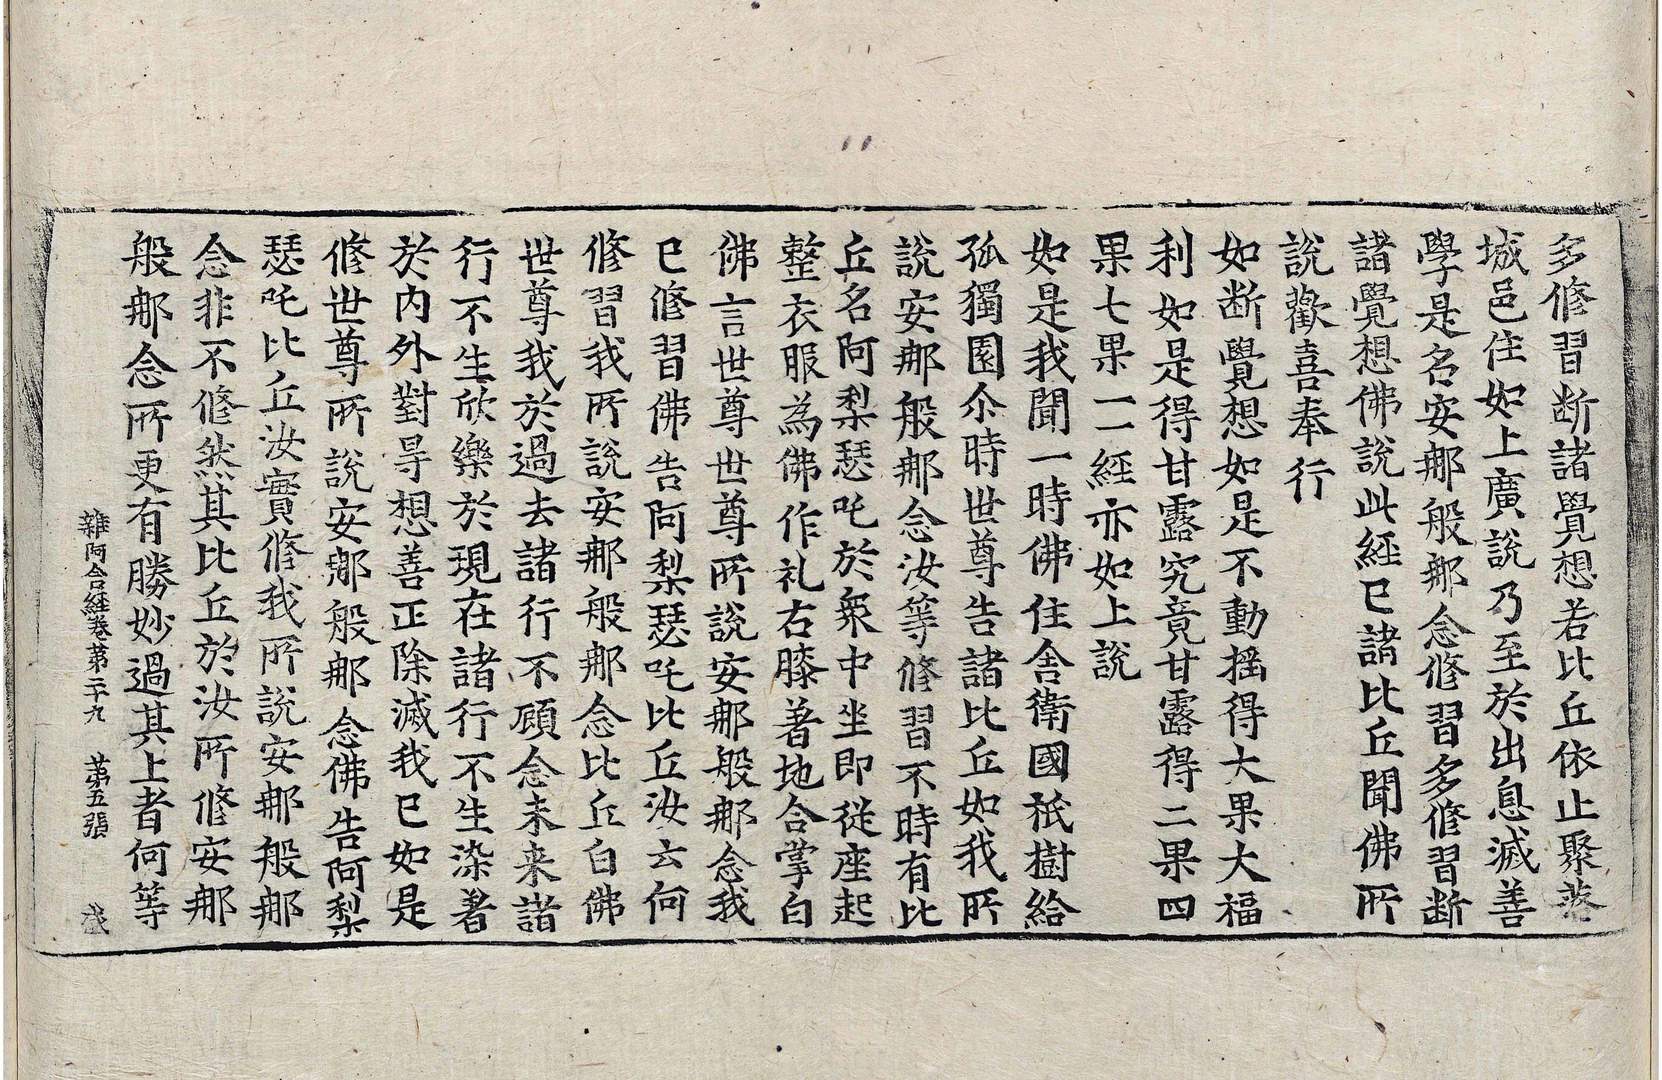 多修習断諸覺想若比丘依止聚落
城邑住如上廣說乃至於出息滅善
學是名安那般那念修習多修習断
諸覺想佛說此經已諸比丘聞佛所
說歡喜奉行
如断覺想如是不動揺得大果大福
利如是得甘露究竟甘露得二果四
果七果一一經亦如上說
如是我聞一時佛住舍衛國祇樹給
孤獨園尒時世尊告諸比丘如我所
說安那般那念汝等修習不時有比
丘名阿梨瑟吒於衆中坐即從座起
整衣服為佛作礼右膝著地合掌白
佛言世尊世尊所說安那般那念我
已修習佛告阿梨瑟吒比丘汝云何
修習我所說安那般那念比丘白佛
世尊我於過去諸行不顧念未来諸
行不生欣樂於現在諸行不生染著
於内外對导想善正除滅我已如是
修世尊所說安那般那念佛告阿梨
瑟吒比丘汝實修我所說安那般那
念非不修然其比丘於汝所修安那
般那念所更有勝妙過其上者何等
雜阿含經卷第二十九 第五張